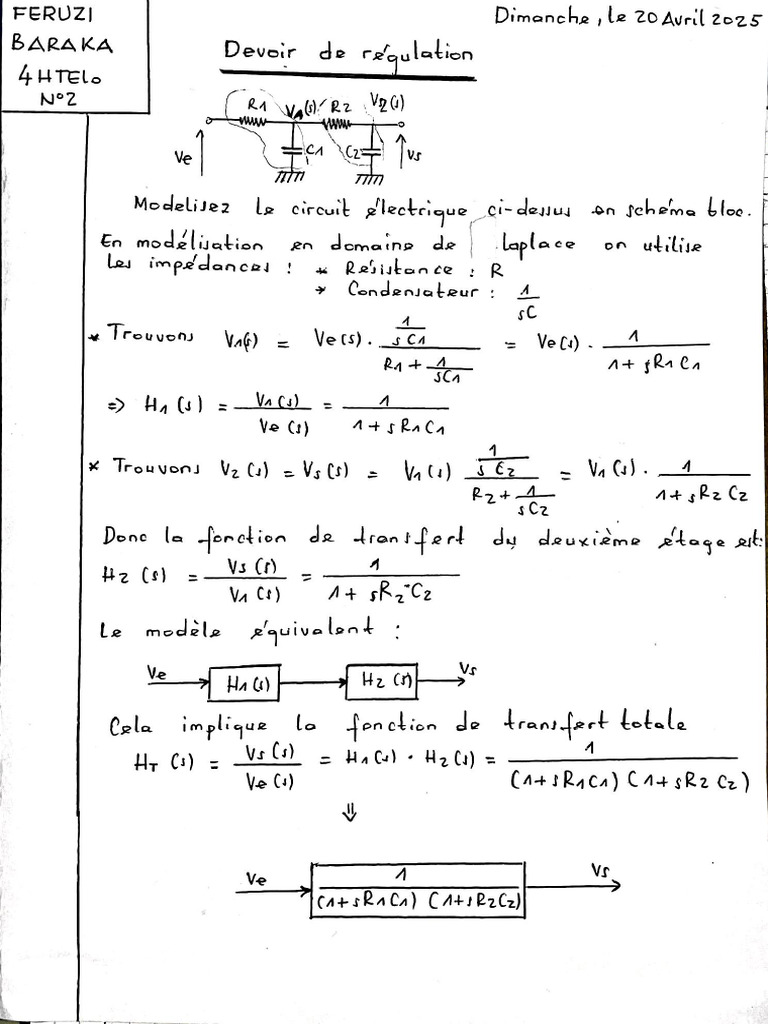 FERUZI
BARAKA
4HTELo
N°2
Dimanche, le 20 Avril 2025
Devoir de régulation
R1 V1(s) R2 V2(s)
Ve C1 C2 Vs
Modelisez le circuit électrique ci-dessus en schéma bloc.
En modélisation en domaine de laplace on utilise
les impédances : * Résistance : R
* Condensateur : 1/sC
* Trouvons V1(s) = Ve(s) . (1/sC1)/(R1 + 1/sC1) = Ve(s) . 1/(1 + sR1C1)
=> H1(s) = V1(s)/Ve(s) = 1/(1 + sR1C1)
* Trouvons V2(s) = Vs(s) = V1(s) (1/sC2)/(R2 + 1/sC2) = V1(s) . 1/(1 + sR2C2)
Donc la fonction de transfert du deuxième étage est:
H2(s) = Vs(s)/V1(s) = 1/(1 + sR2C2)
Le modèle équivalent :
Ve H1(s) H2(s) Vs
Cela implique la fonction de transfert totale
HT(s) = Vs(s)/Ve(s) = H1(s) . H2(s) = 1/((1+sR1C1) (1+sR2C2))
⇓
Ve 1/((1+sR1C1) (1+sR2C2)) Vs